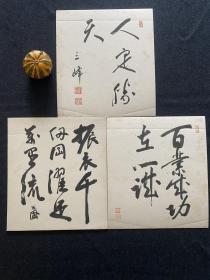 人定勝
天
三峰
百業成功
在一誠
振衣千
仞岡濯足
萬里流